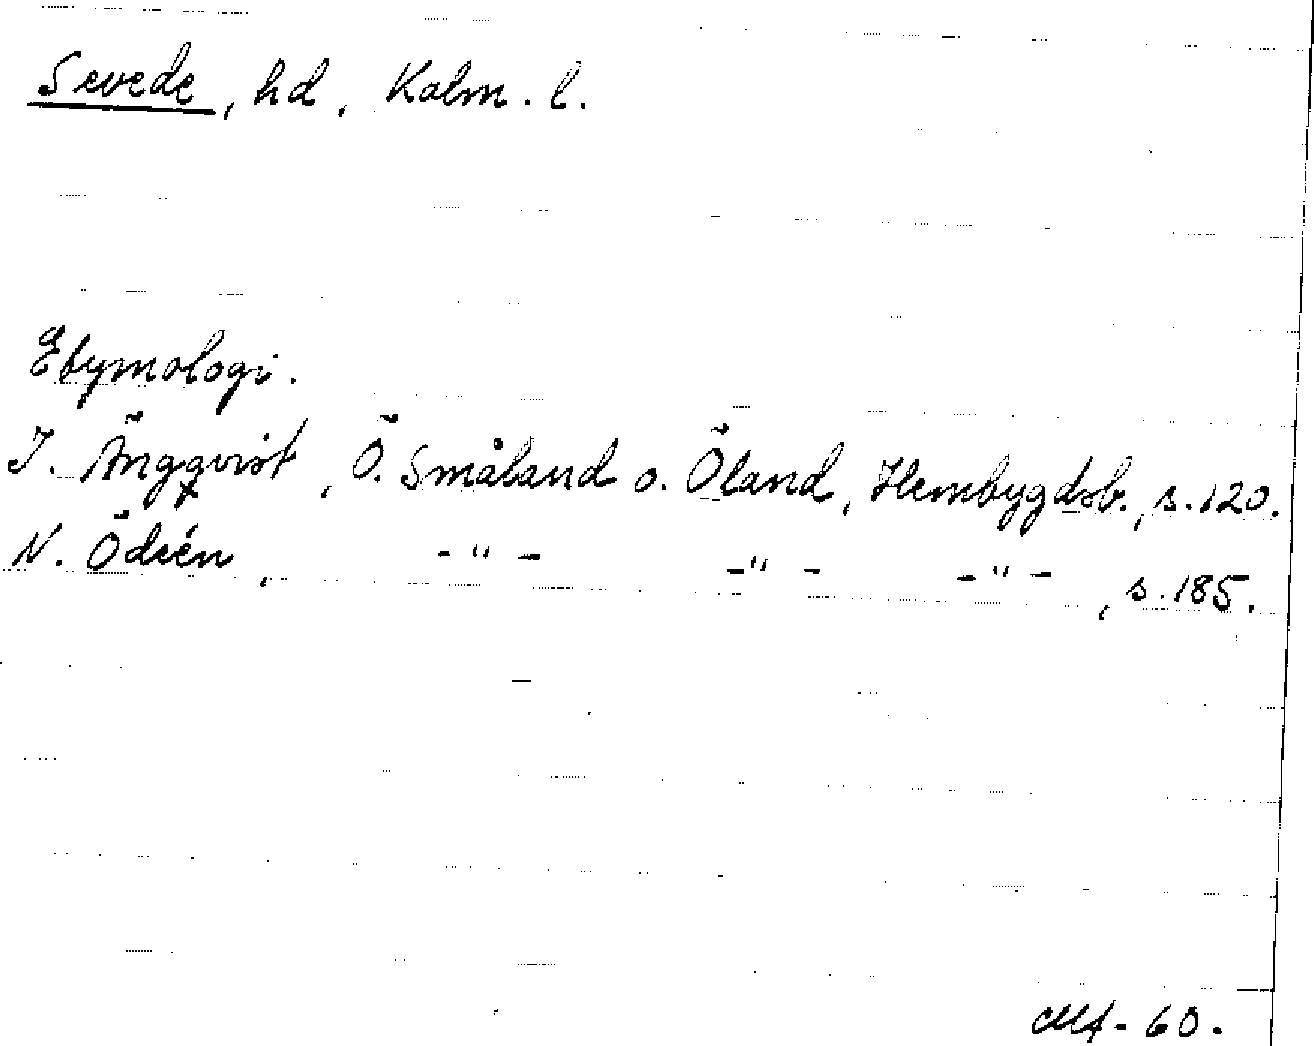 Sevede, hd, Kalm. l.
Etymologi.
J. Ängqvist, Ö. Småland o. Öland, Hembygdsb., s. 120.
N. Ödeén, -"- -"- -"-, s. 185.
60.